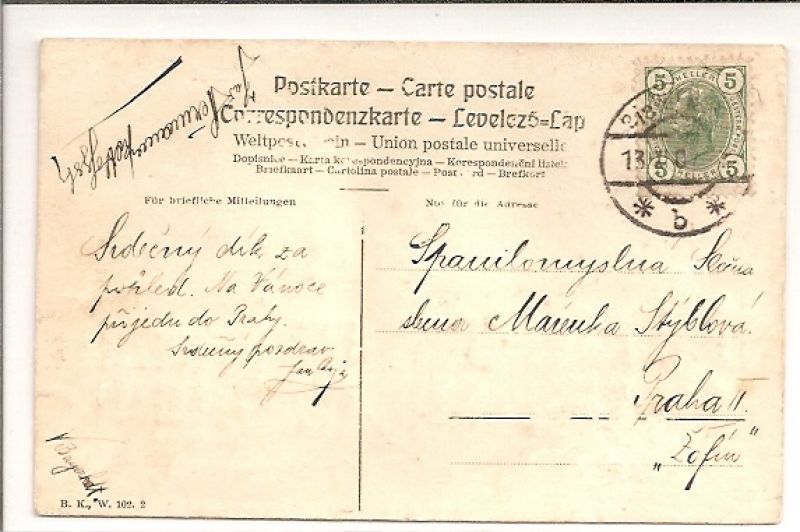 Postkarte – Carte postale
Correspondenzkarte – Levelező=Lap
Weltpost – Union postale universelle
Dopisnice – Karta korespondencyjna – Korespondenční lístek
Briefkaart – Cartolina postale – Post ard – Brefkort
Für briefliche Mitteilungen
Nur für die Adresse
5 HELLER 5
5 HELLER 5
13
* b *
Srdečný dík za
pohled. Na Vánoce
přijedu do Prahy.
Srdečný pozdrav
Jan
Spanilomyslná Slečna
slečna Mařenka Stýblová
Praha II.
„Žofín“
B. K., W. 102. 2